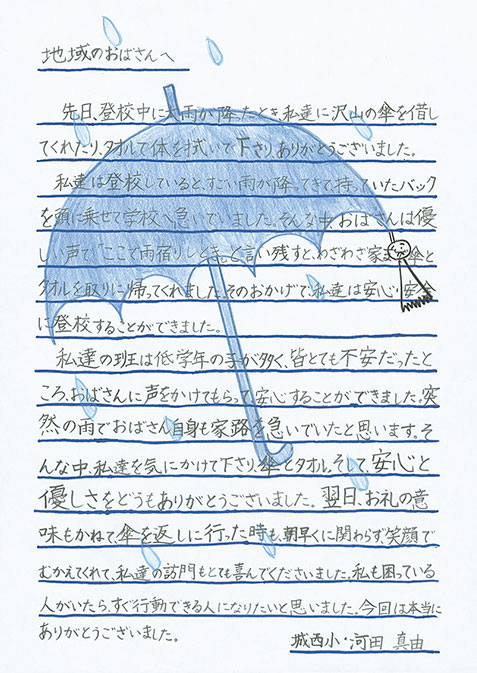 地域のおばさんへ
先日、登校中に大雨が降ったとき、私達に沢山の傘を借し
てくれたり、タオルで体を拭いて下さり、ありがとうございました。
私達は登校していると、すごい雨が降ってきて持っていたバック
を頭に乗せて学校へ急いでいました。そんな中、おばさんは優
しい声で「ここで雨宿りしとき。」と言い残すと、わざわざ家まで傘と
タオルを取りに帰ってくれました。そのおかげで、私達は安心・安全
に登校することができました。
私達の班は低学年の子が多く、皆とても不安だったと
ころ、おばさんに声をかけてもらって、安心することができました。突
然の雨でおばさん自身も家路を急いでいたと思います。そ
んな中、私達を気にかけて下さり、傘とタオル、そして、安心と
優しさをどうもありがとうございました。翌日、お礼の意
味もかねて、傘を返しに行った時も、朝早くに関わらず、笑顔で
むかえてくれて、私達の訪問もとても喜んでくださいました。私も困っている
人がいたら、すぐ行動できる人になりたいと思いました。今回は本当に
ありがとうございました。
城西小・河田 真由